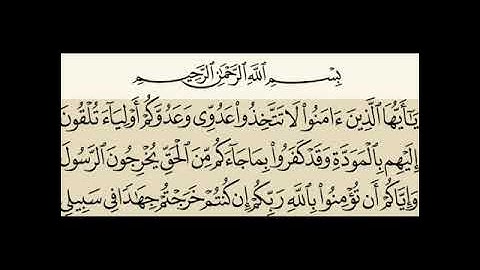 بِسْمِ اللَّهِ الرَّحْمَٰنِ الرَّحِيمِ
يَٰٓأَيُّهَا الَّذِينَ ءَامَنُوا۟ لَا تَتَّخِذُوا۟ عَدُوِّى وَعَدُوَّكُمْ أَوْلِيَآءَ تُلْقُونَ
إِلَيْهِم بِالْمَوَدَّةِ وَقَدْ كَفَرُوا۟ بِمَا جَآءَكُم مِّنَ الْحَقِّ يُخْرِجُونَ الرَّسُولَ
وَإِيَّاكُمْ أَن تُؤْمِنُوا۟ بِاللَّهِ رَبِّكُمْ إِن كُنتُمْ خَرَجْتُمْ جِهَٰدًا فِى سَبِيلِى